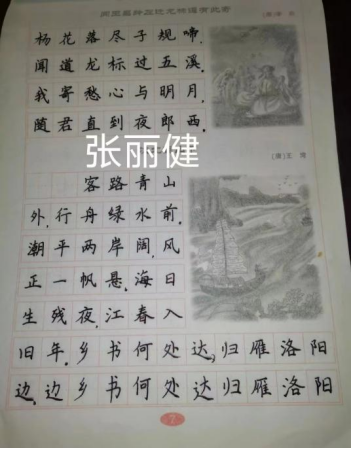 [唐]李白
杨花落尽子规啼,
闻道龙标过五溪.
我寄愁心与明月,
随君直到夜郎西.
张丽健
[唐]王湾
客路青山
外,行舟绿水前.
潮平两岸阔,风
正一帆悬.海日
生残夜,江春入
旧年.乡书何处达,归雁洛阳
边.边乡书何处达归雁洛阳